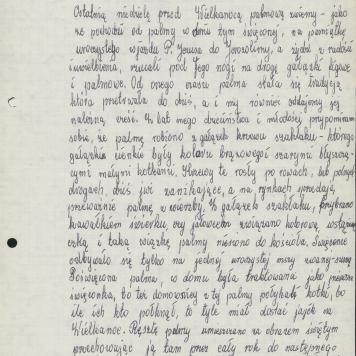 Ostatnią niedzielę przed Wielkanocą palmową zwiemy - jako
że pochodzi od palmy w dniu tym święconej, na pamiątkę
uroczystego wjazdu P. Jezusa do Jerozolimy, a żydzi z radości
i uwielbienia, rzucali pod Jego nogi na drogę gałązki figowe
i palmowe. Od onego czasu palma stała się tradycją
która przetrwała do dziś, a i my również oddajemy jej
należną cześć. Z lat mego dzieciństwa i młodości przypominam
sobie, że palmę robiono z gałązek krzewu szakłaku, którego
gałązki cienkie były koloru brązowego z szarymi błyszczą-
cymi małymi kotkami. Krzewy te rosły po rowach, lub polnych
drogach, dziś już zanikające, a na rynkach sprzedają
przeważnie palmę z wierzby. Z gałązek szakłaku, przybrano
kawałkiem świerku, czy jałowcem związano kolorową wstążecz-
ką i taką wiązkę palmy niesiono do kościoła. Święcenie
odbywało się tylko na jednej uroczystej mszy zwanej sumą
Poświęcona palma, w domu była traktowana jako pierwsza
święconka, bo też domownicy z tej palmy połykali kotki, bo
ile ich kto połknął, to tyle miał dostać jajek na
Wielkanoc. Resztę palmy umieszczano za obrazem świętym
przechowując ją tam przez cały rok do następnego